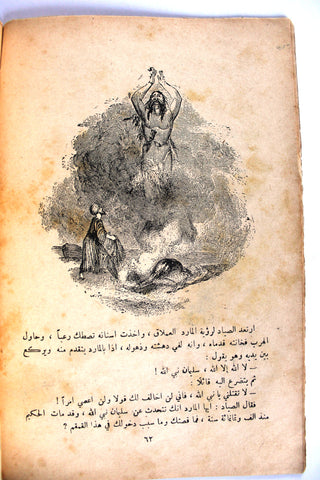 ارتعد الصياد لرؤية المارد العملاق ، واخذت اسنانه تصطك رعباً ، وحاول
الهرب فخانته قدماه ، وانه لفي دهشته وذهوله ، اذا بالمارد يتقدم منه ويركع
بين يديه وهو يقول :
ـ لا اله إلا الله ، سليمان نبي الله !
ثم يتضرع اليه قائلا :
ـ لا تقتلني يا نبي الله ، فاني لن اخالف لك قولا ولن اعصي امراً !
فقال الصياد : ايها المارد انك تتحدث عن سليمان نبي الله ، وقد مات الحكيم
منذ الف وثمانمائة سنة ، فما قصتك وما سبب دخولك في هذا القمقم ؟
٦٣